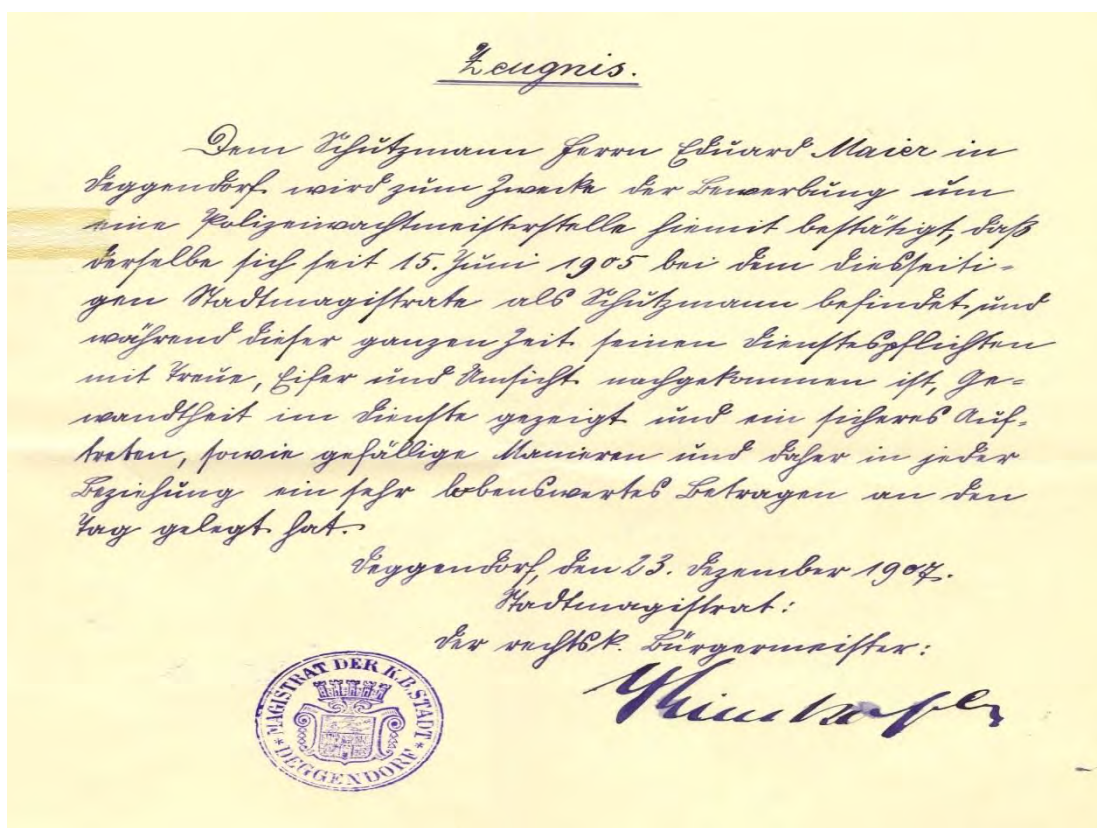 Zeugnis.
Dem Schutzmann Herrn Eduard Maier in
Deggendorf wird zum Zwecke der Bewerbung um
eine Polizeiwachtmeisterstelle hiemit bestätigt, daß
derselbe sich seit 15. Juni 1905 bei dem diesseiti-
gen Stadtmagistrate als Schutzmann befindet und
während dieser ganzen Zeit seinen Dienstespflichten
mit Treue, Eifer und Umsicht nachgekommen ist, Ge-
wandtheit im Dienste gezeigt und ein sicheres Auf-
treten, sowie gefällige Manieren und daher in jeder
Beziehung ein sehr lobenswertes Betragen an den
Tag gelegt hat.
Deggendorf, den 23. Dezember 1907.
Stadtmagistrat:
Der rechtsk. Bürgermeister:
MAGISTRAT DER K. B. STADT
* DEGGENDORF *